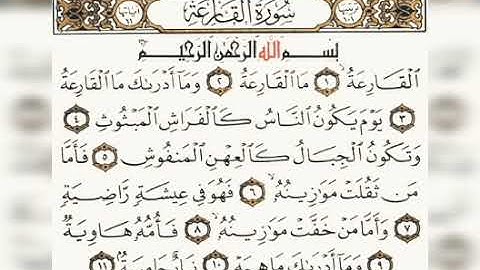 سُورَةُ الْقَارِعَةِ
بِسْمِ اللَّهِ الرَّحْمَٰنِ الرَّحِيمِ
الْقَارِعَةُ ١ مَا الْقَارِعَةُ ٢ وَمَا أَدْرَىٰكَ مَا الْقَارِعَةُ
٣ يَوْمَ يَكُونُ النَّاسُ كَالْفَرَاشِ الْمَبْثُوثِ ٤
وَتَكُونُ الْجِبَالُ كَالْعِهْنِ الْمَنْفُوشِ ٥ فَأَمَّا
مَن ثَقُلَتْ مَوَٰزِينُهُ ٦ فَهُوَ فِي عِيشَةٍ رَّاضِيَةٍ
٧ وَأَمَّا مَنْ خَفَّتْ مَوَٰزِينُهُ ٨ فَأُمُّهُ هَاوِيَةٌ
٩ وَمَا أَدْرَىٰكَ مَا هِيَهْ ١٠ نَارٌ حَامِيَةٌ ١١